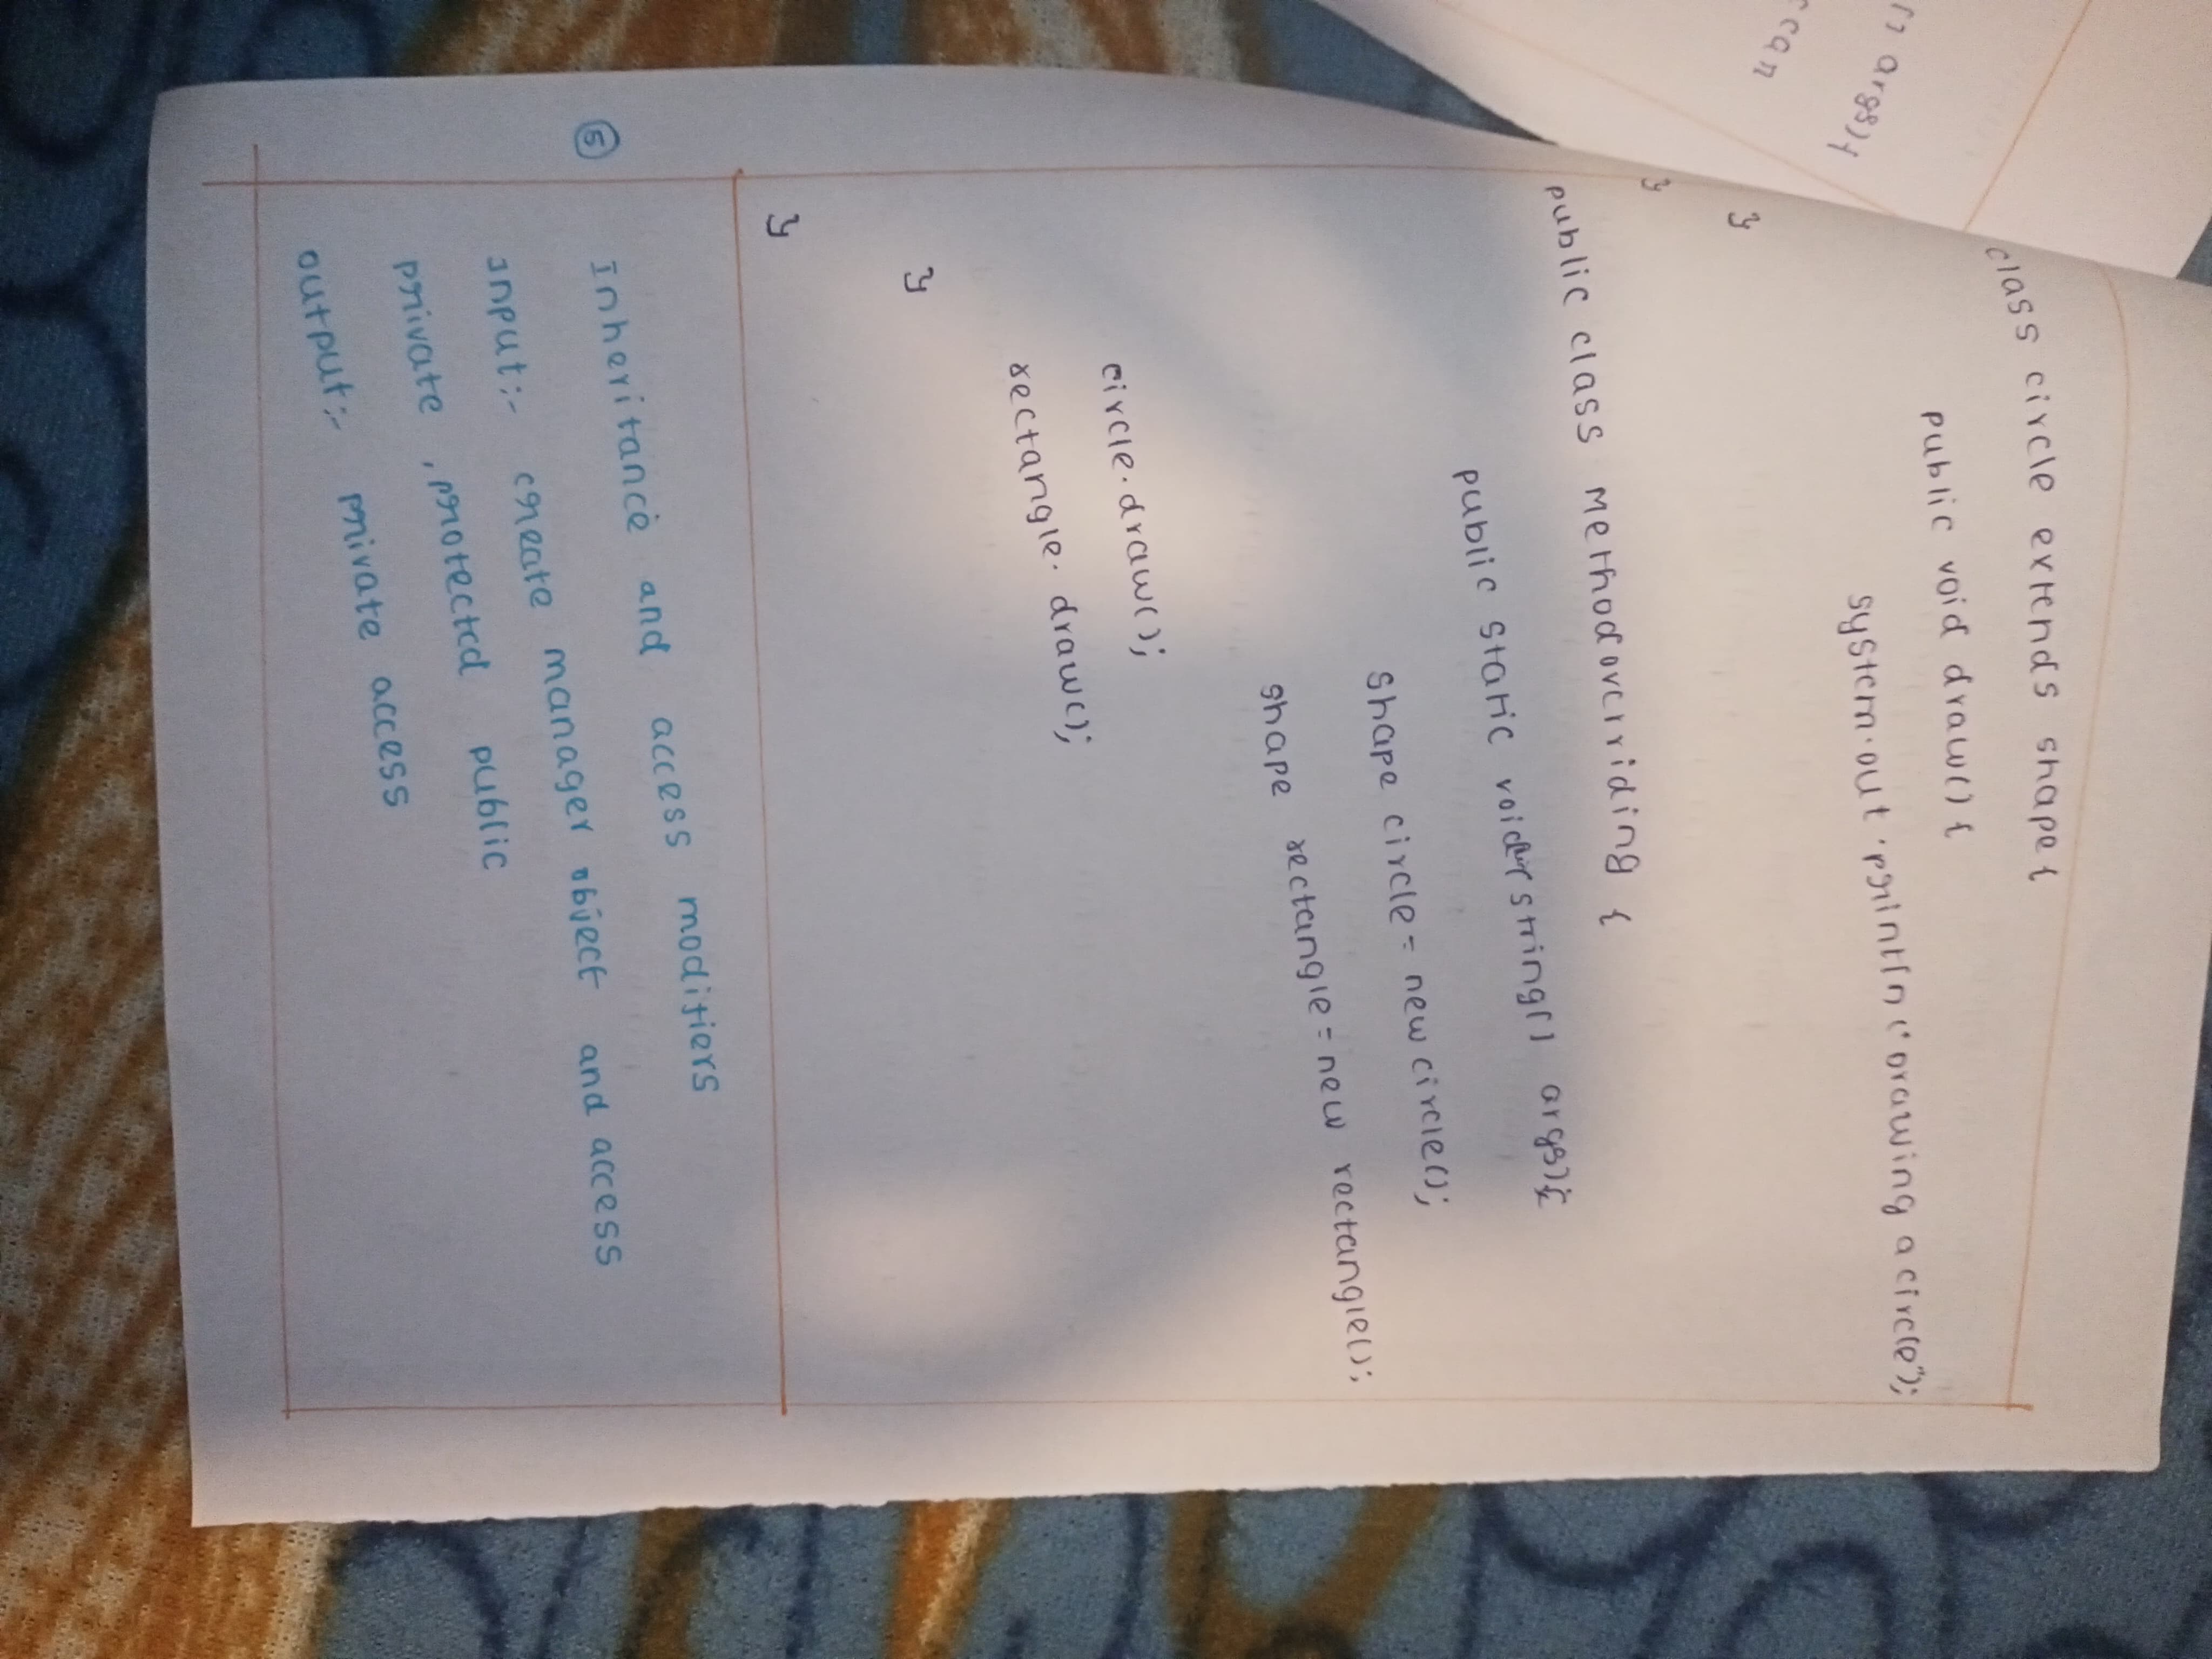 [] args){
can
class circle extends shape{
public void draw() {
system.out.println("Drawing a circle");
}
}
public class methodoverriding {
public static void string[] args){
shape circle = new circle();
shape rectangle = new rectangle();
circle.draw();
rectangle. draw();
}
}
⑤ Inheritance and access modifiers
Input:- create manager object and access
private , protected public
output:- private access